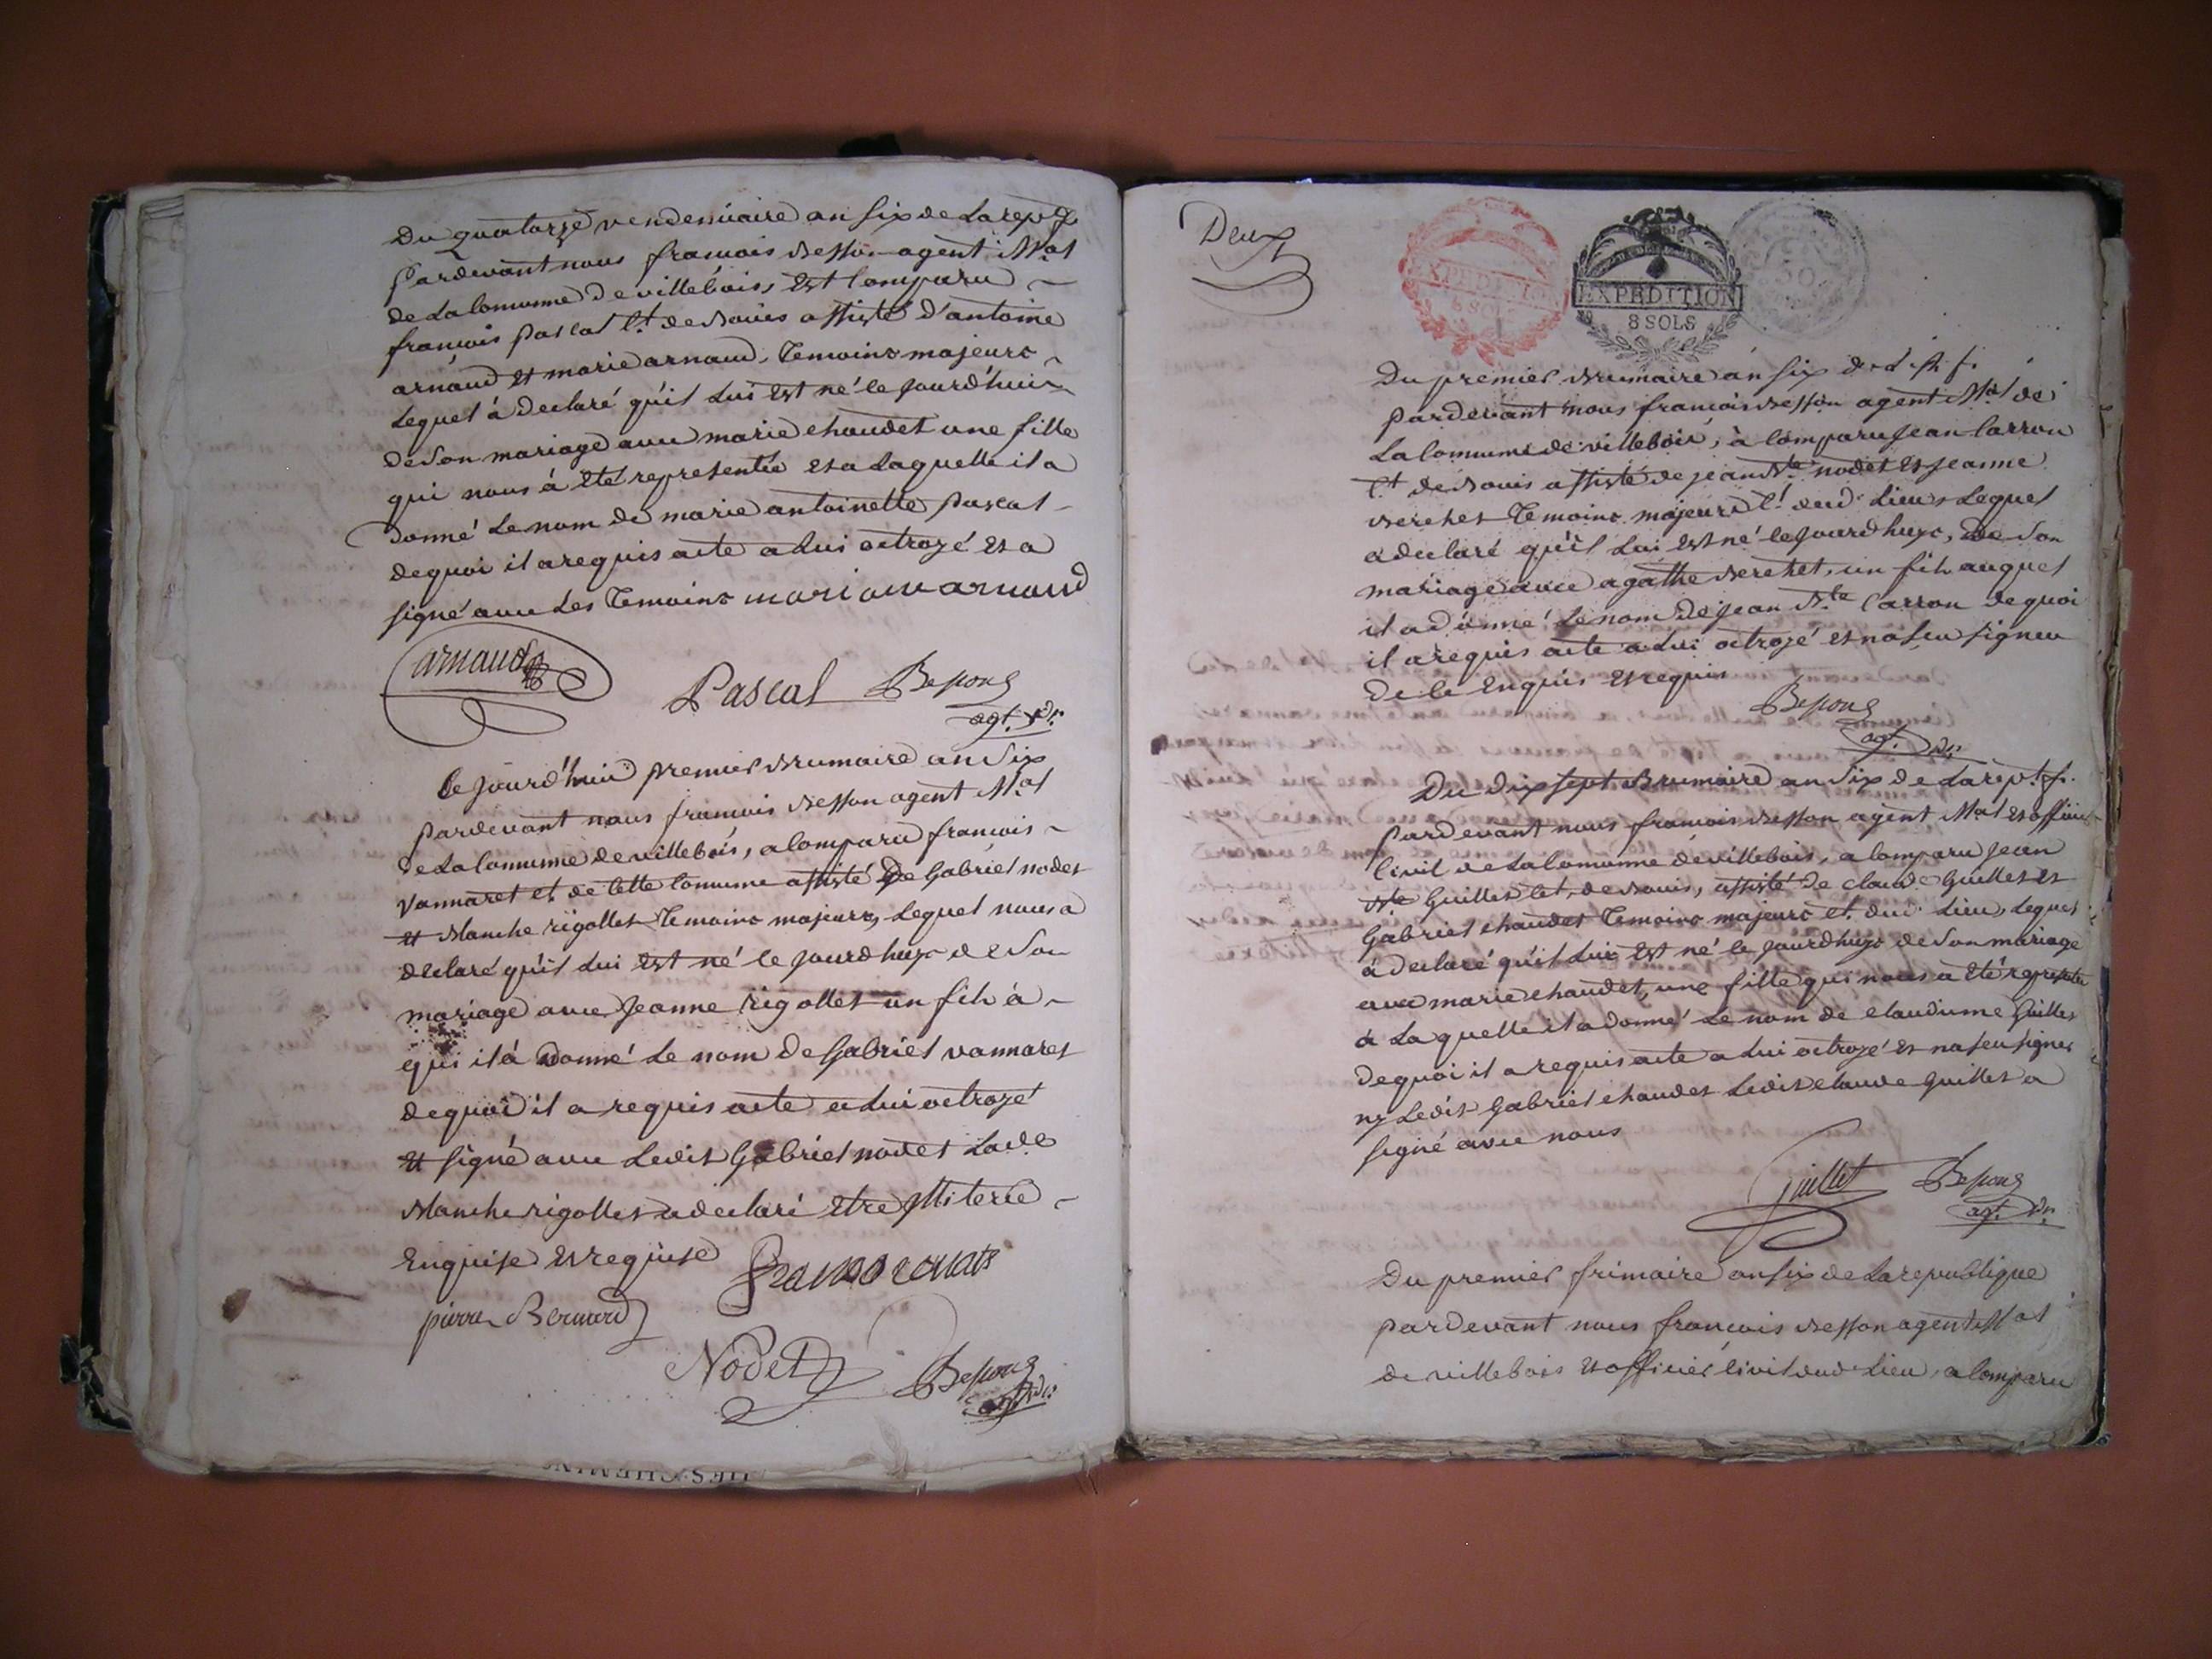 Du quatorze vendemiaire an six de La rep. f.
Pardevant nous francois Besson agent M.al
de La Commune de villebois, Est Comparu
francois pascal C.t de Bouis assisté d'antoine
arnaud Et marie arnaud, Temoins majeurs
Lequel à declaré qu'il Lui Est né le jourd'huix
de Son mariage avec marie chaudet une fille
qui nous à Eté representée Et a Laquelle il a
donné Le nom de marie antoinette pascal
de quoi il a requis acte a Lui octroyé Et a
signé avec Les Temoins mariane arnaud
arnaud
Pascal Besson
agt.
Ce jourd'huix premier Brumaire an Six
pardevant nous francois Besson agent M.al
de La Commune de villebois, a Comparu francois
vannaret et. de Cette Commune assisté De Gabriel nodet
Et Blanche rigollet Temoins majeurs, Lequel nous a
declaré qu'il Lui Est né le jourdhuy de Son
mariage avec Jeanne rigollet un fils à
qui il à Donné Le nom de Gabriel vannaret
de quoi il a requis acte a Lui octroyé
Et signé avec Ledit Gabriel nodet Lad.e
Blanche rigollet a declaré Etre illiterée
Enquise Et requise
pierre Bernard
Nodet Besson
agt.
Deux
EXPEDITION
8 SOLS
EXPEDITION
8 SOLS
Du premier Brumaire an six de L. R. f.
pardevant nous francois Besson agent M.al de
La Commune de villebois, à Comparu Jean Carron
C.t de Bouis assisté de jean B.te nodet Et Jeanne
Berchet Temoins majeurs C.t dud. Lieu, Lequel
a declaré qu'il Lui Est né le jourdhuy, de Son
mariage avec agathe Berchet, un fils auquel
il a donné Le nom de jean B.te Carron de quoi
il a requis acte a Lui octroyé Et na sçu signer
de Ce Enquis Et requis
Besson
agt.
Du dix sept Brumaire an Six de La rep. f.
pardevant nous francois Besson agent M.al Et officier
Civil de La Commune de villebois, a Comparu Jean
B.te Guillet Cet. de Bouis, assisté de claude Guillet Et
Gabriel chaudet Temoins majeurs et. dud. Lieu, Lequel
à declaré qu'il Lui Est né le jourdhuy de Son mariage
avec marie chaudet, une fille qui nous a Eté represetée
à Laquelle il a donné Le nom de claudinne Guillet
de quoi il a requis acte a Lui octroyé Et na sçu signer
ny Ledit Gabriel chaudet Ledit claude Guillet a
signé avec nous
guillet Besson
agt.
Du premier frimaire an six de La republique
pardevant nous francois Besson agent M.al
de villebois Et officier Civil dud. Lieu, a Comparu